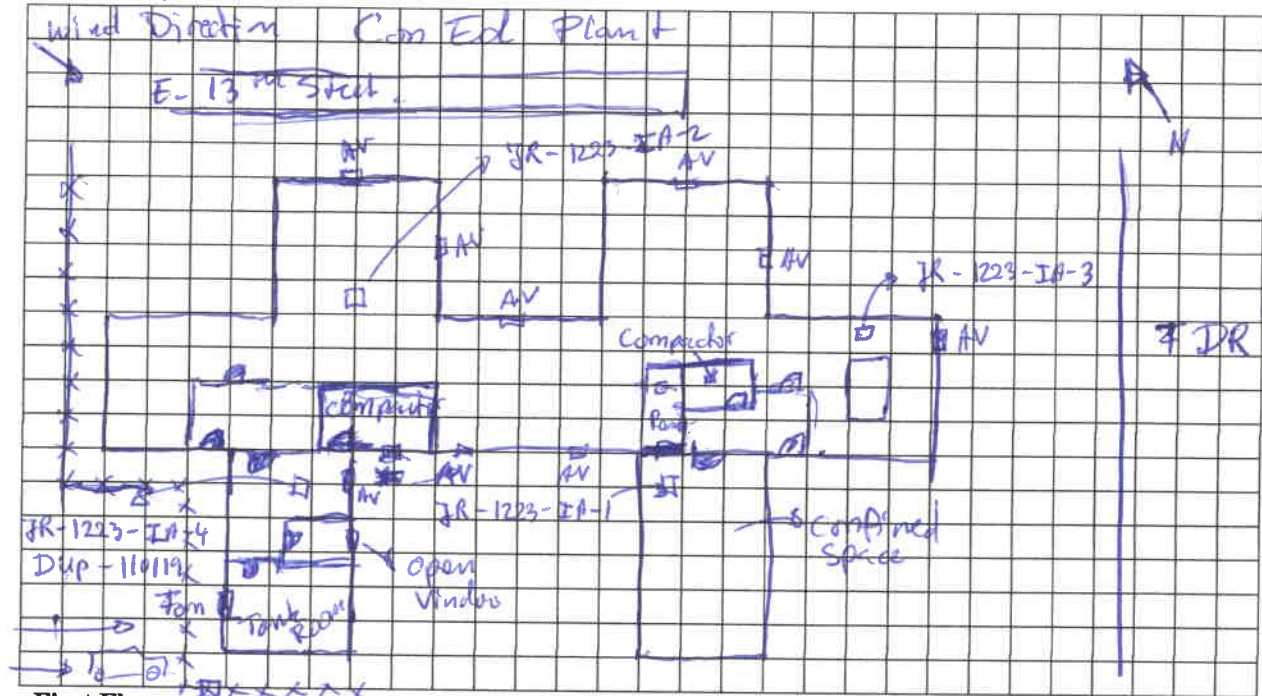 Wind Direction Con Ed Plant
E-13th Street.
AV
JR-1223-IA-2
AV
AV
AV
JR-1223-IA-3
N
AV
AV
FDR
Compactor
Compactor
AV
AV
AV
JR-1223-IA-1
JR-1223-IA-4
Dup-110119
Open
Window
Confined
Space
Fan
Tank
Room